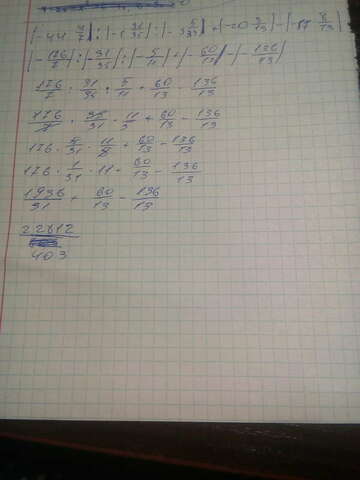 |-176/7| : |-31/35| : |-5/11| + |-60/13| - |-136/13|
176/7 : 31/35 : 5/11 + 60/13 - 136/13
176/7 · 35/31 · 11/5 + 60/13 - 136/13
176 · 5/31 · 11/5 + 60/13 - 136/13
176 · 1/31 · 11 + 60/13 - 136/13
1936/31 + 60/13 - 136/13
22812/403